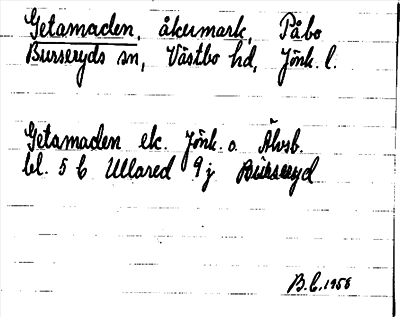 Getamaden, åkermark, Påbo
Burseryds sn, Västbo hd, Jönk. l.
Getamaden ek. Jönk. o. Älvsb.
bl. 5 C Ullared 9 j Burseryd
B.C. 1956